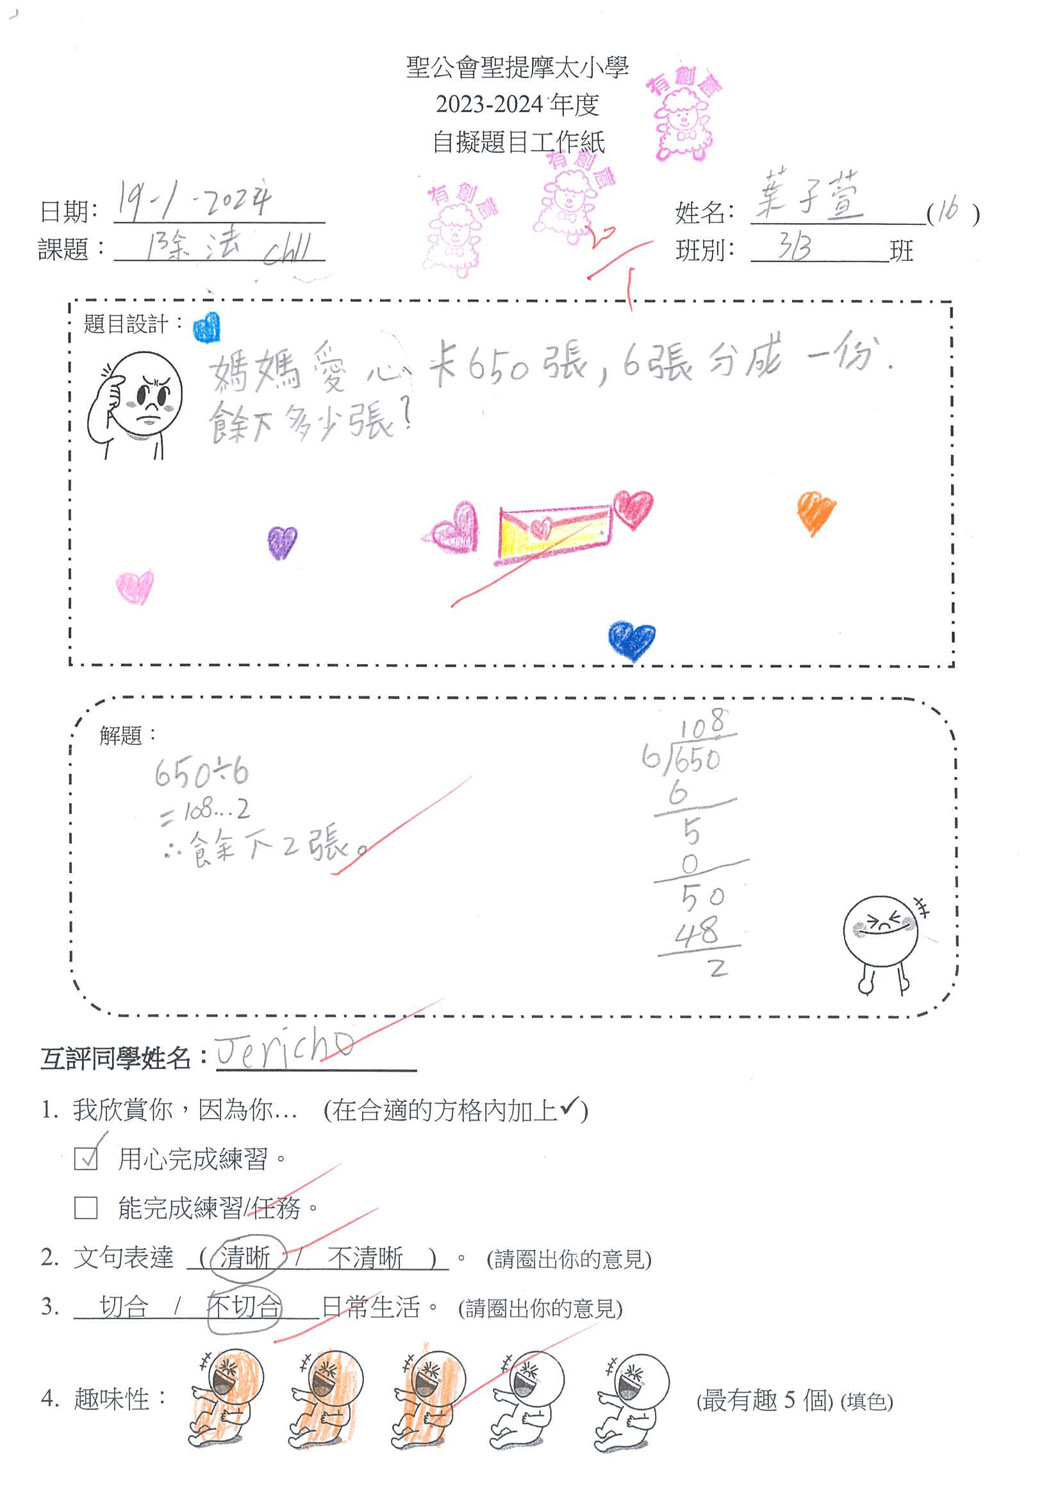 聖公會聖提摩太小學
2023-2024 年度
自擬題目工作紙
有創意
有創意
有創意
日期： 19-1-2024
姓名： 葉子萱 (16)
課題： 除法 ch11
班別： 3B 班
題目設計：
媽媽愛心卡650張，6張分成一份.
餘下多少張?
解題：
650÷6
=108...2
∴餘下2張。
108
6)650
6
5
0
50
48
2
互評同學姓名：Jericho
1. 我欣賞你，因為你… (在合適的方格內加上✓)
☑ 用心完成練習。
☐ 能完成練習/任務。
2. 文句表達 ( 清晰 / 不清晰 )。 (請圈出你的意見)
3. 切合 / 不切合 日常生活。 (請圈出你的意見)
4. 趣味性： (最有趣 5 個) (填色)